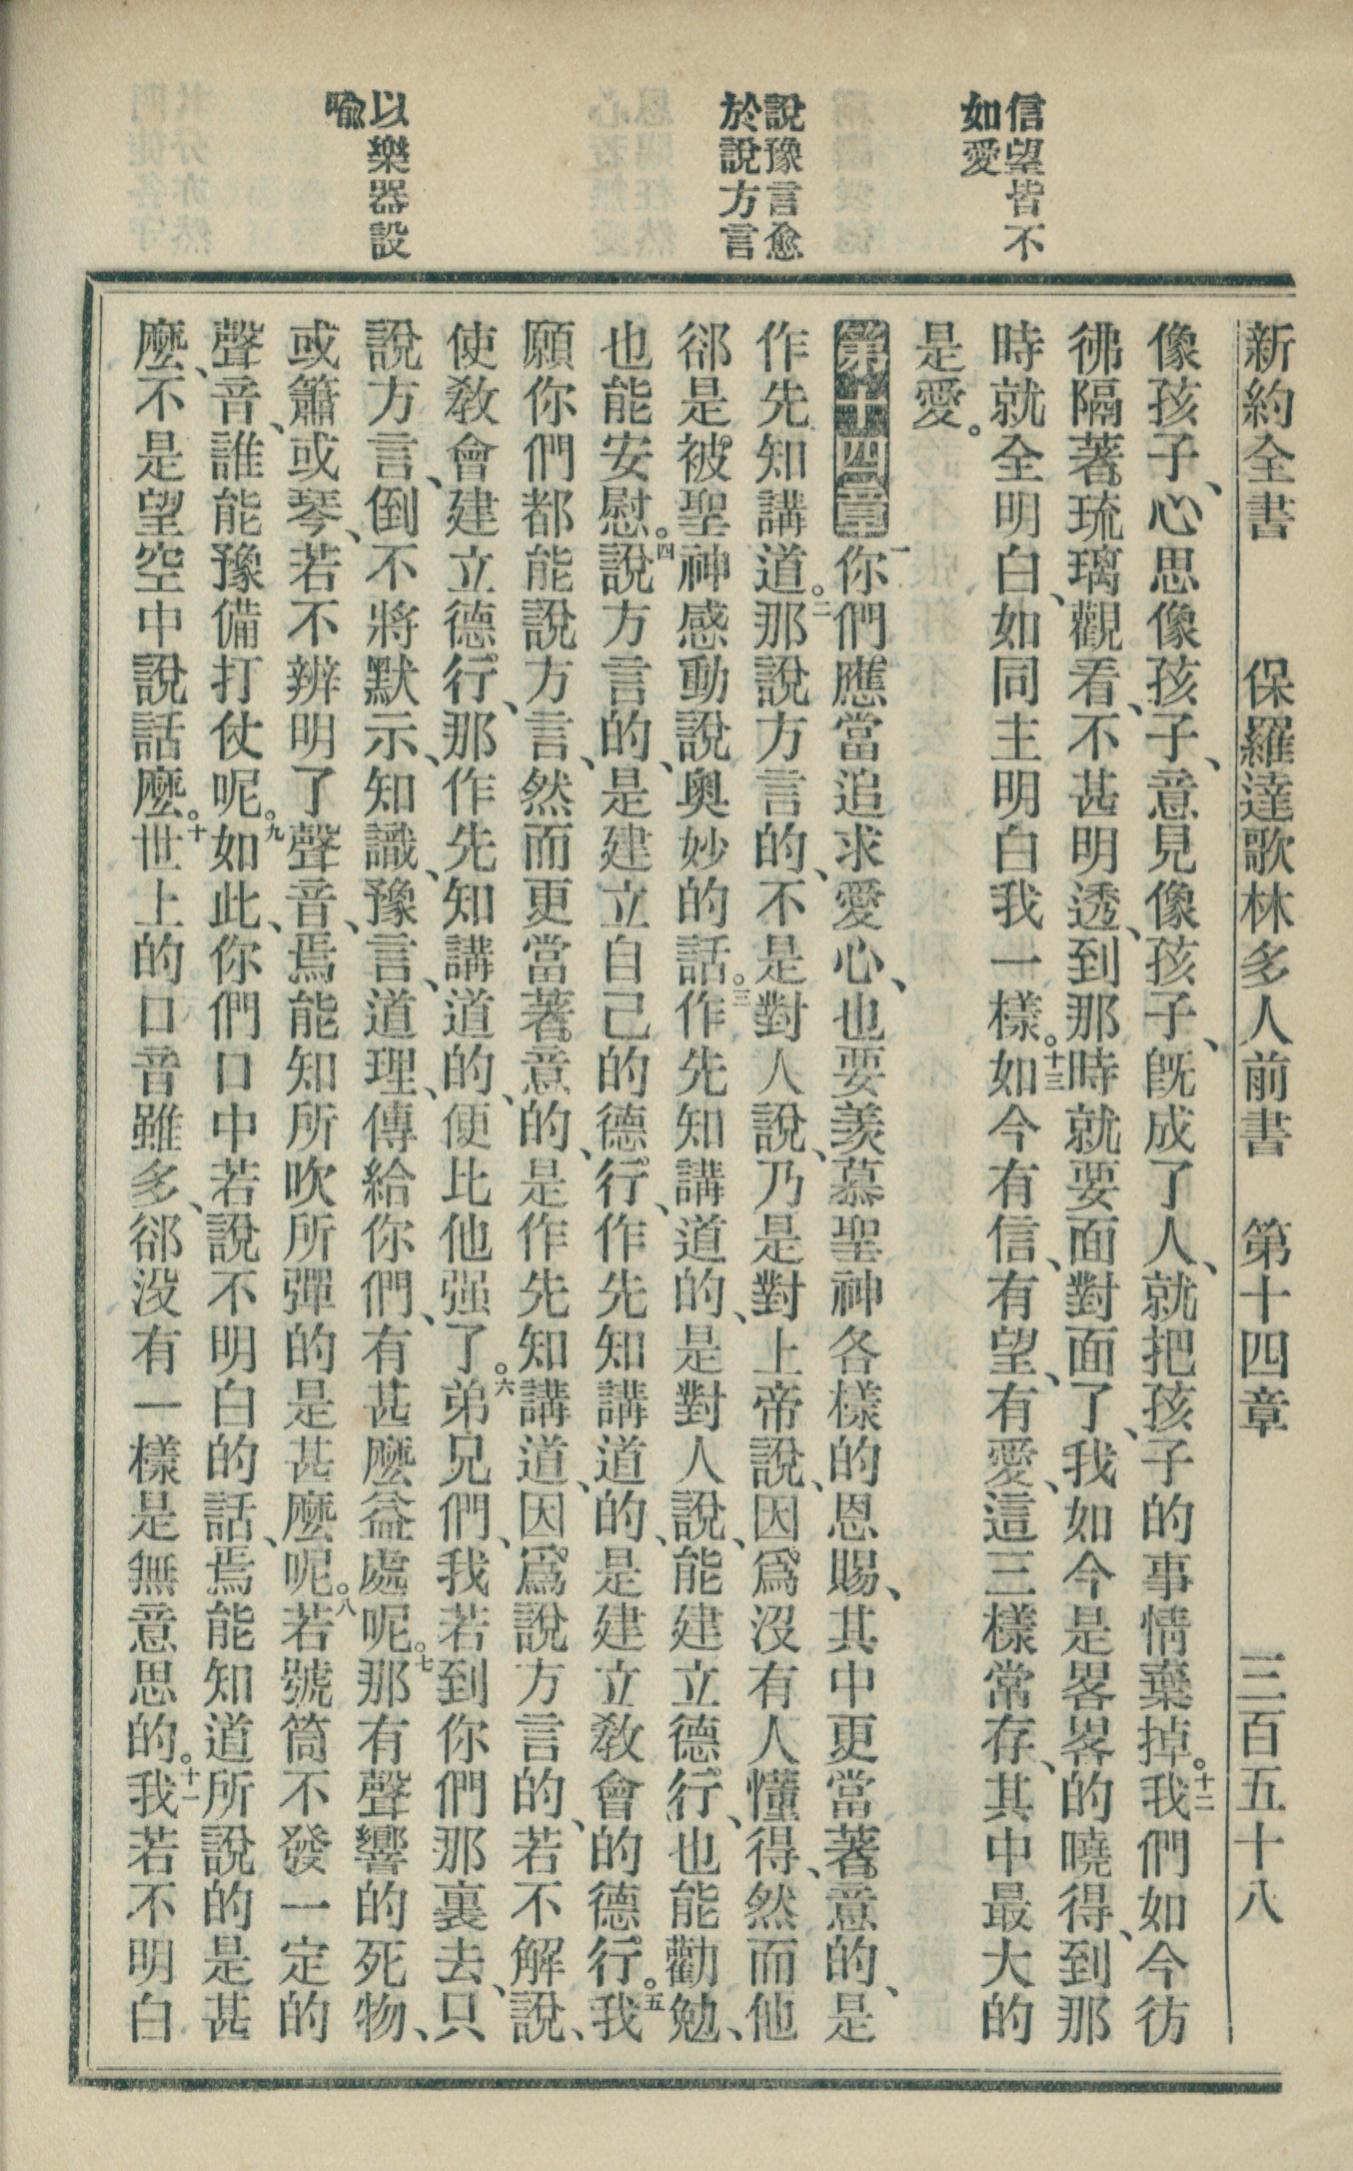 新約全書　保羅達歌林多人前書　第十四章　三百五十八
信望皆不
如愛
說豫言愈
於說方言
以樂器設
喻
像孩子、心思像孩子、意見像孩子、旣成了人、就把孩子的事情棄掉。十二我們如今彷
彿隔著琉璃觀看、不甚明透、到那時就要面對面了、我如今是畧畧的曉得、到那
時就全明白、如同主明白我一樣。十三如今有信、有望、有愛、這三樣常存、其中最大的
是愛。
第十四章一你們應當追求愛心、也要羨慕聖神各樣的恩賜、其中更當著意的、是
作先知講道。二那說方言的、不是對人說、乃是對上帝說、因爲沒有人懂得、然而他
郤是被聖神感動說奧妙的話。三作先知講道的、是對人說、能建立德行、也能勸勉、
也能安慰。四說方言的、是建立自己的德行、作先知講道的、是建立敎會的德行。五我
願你們都能說方言、然而更當著意的、是作先知講道、因爲說方言的、若不解說、
使敎會建立德行、那作先知講道的、便比他强了。六弟兄們、我若到你們那裏去、只
說方言、倒不將默示、知識、豫言、道理、傳給你們、有甚麽益處呢。七那有聲響的死物、
或簫或琴、若不辨明了聲音、焉能知所吹所彈的是甚麽呢。八若號筒不發一定的
聲音、誰能豫備打仗呢。九如此、你們口中若說不明白的話、焉能知道所說的是甚
麽、不是望空中說話麽。十世上的口音雖多、郤沒有一樣是無意思的。十一我若不明白